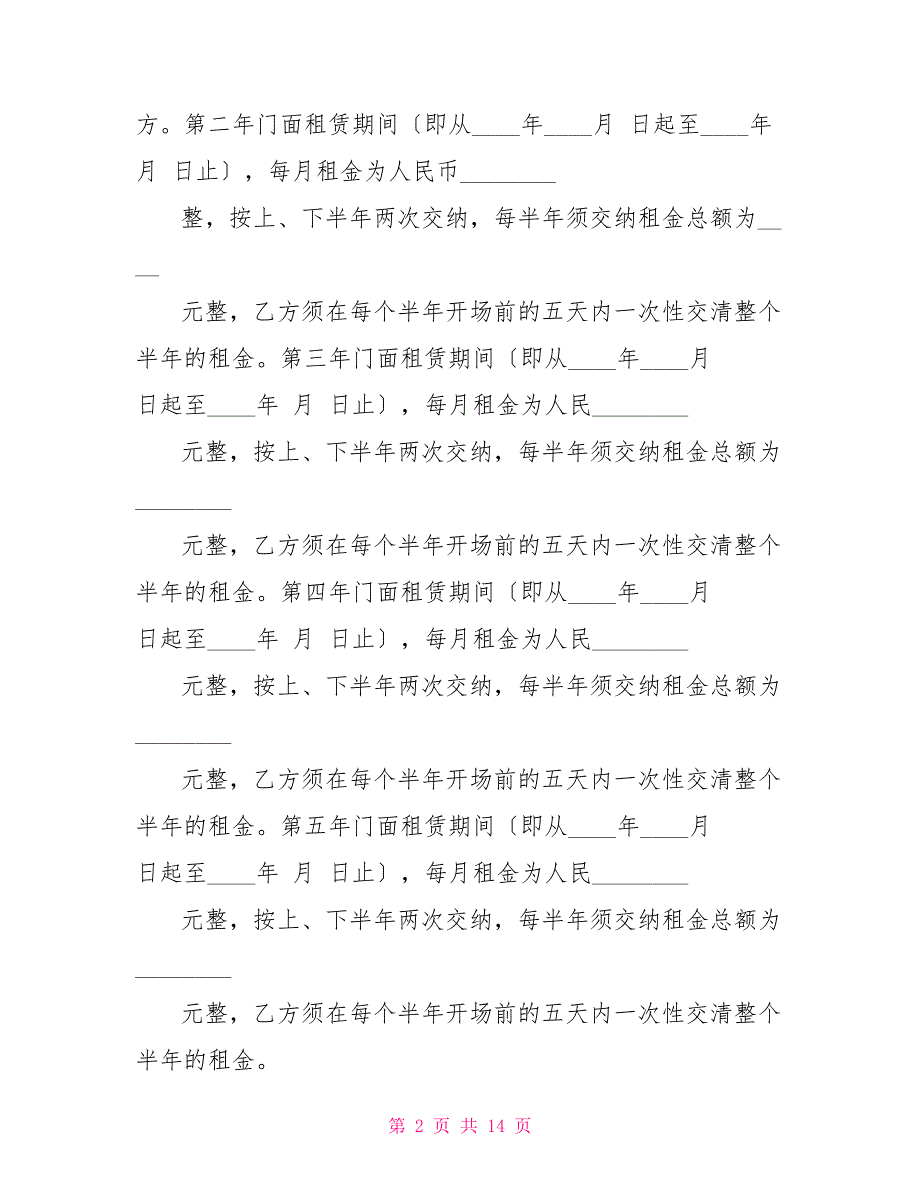 方。第二年门面租赁期间〔即从____年____月 日起至____年
月 日止〕，每月租金为人民币________
整，按上、下半年两次交纳，每半年须交纳租金总额为__
__
元整，乙方须在每个半年开场前的五天内一次性交清整个
半年的租金。第三年门面租赁期间〔即从____年____月
日起至____年 月 日止〕，每月租金为人民________
元整，按上、下半年两次交纳，每半年须交纳租金总额为
________
元整，乙方须在每个半年开场前的五天内一次性交清整个
半年的租金。第四年门面租赁期间〔即从____年____月
日起至____年 月 日止〕，每月租金为人民________
元整，按上、下半年两次交纳，每半年须交纳租金总额为
________
元整，乙方须在每个半年开场前的五天内一次性交清整个
半年的租金。第五年门面租赁期间〔即从____年____月
日起至____年 月 日止〕，每月租金为人民________
元整，按上、下半年两次交纳，每半年须交纳租金总额为
________
元整，乙方须在每个半年开场前的五天内一次性交清整个
半年的租金。
第 2 页 共 14 页